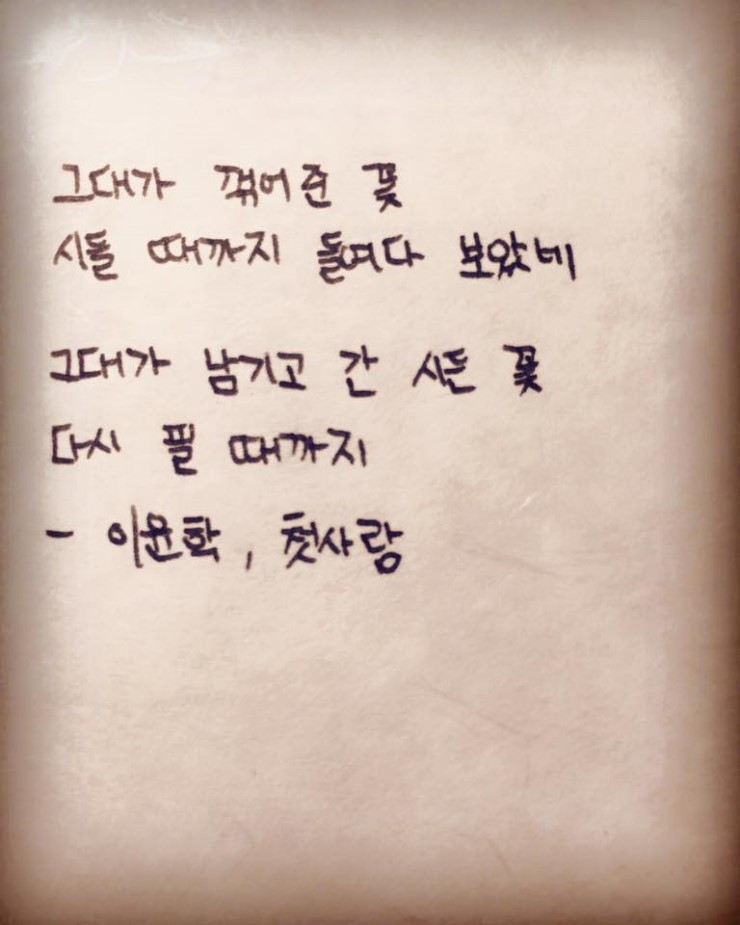 그대가 꺾어 준 꽃
시돌 때까지 돌여다 보았네
그대가 남기고 간 시든 꽃
다시 필 때까지
- 이윤학, 첫사랑